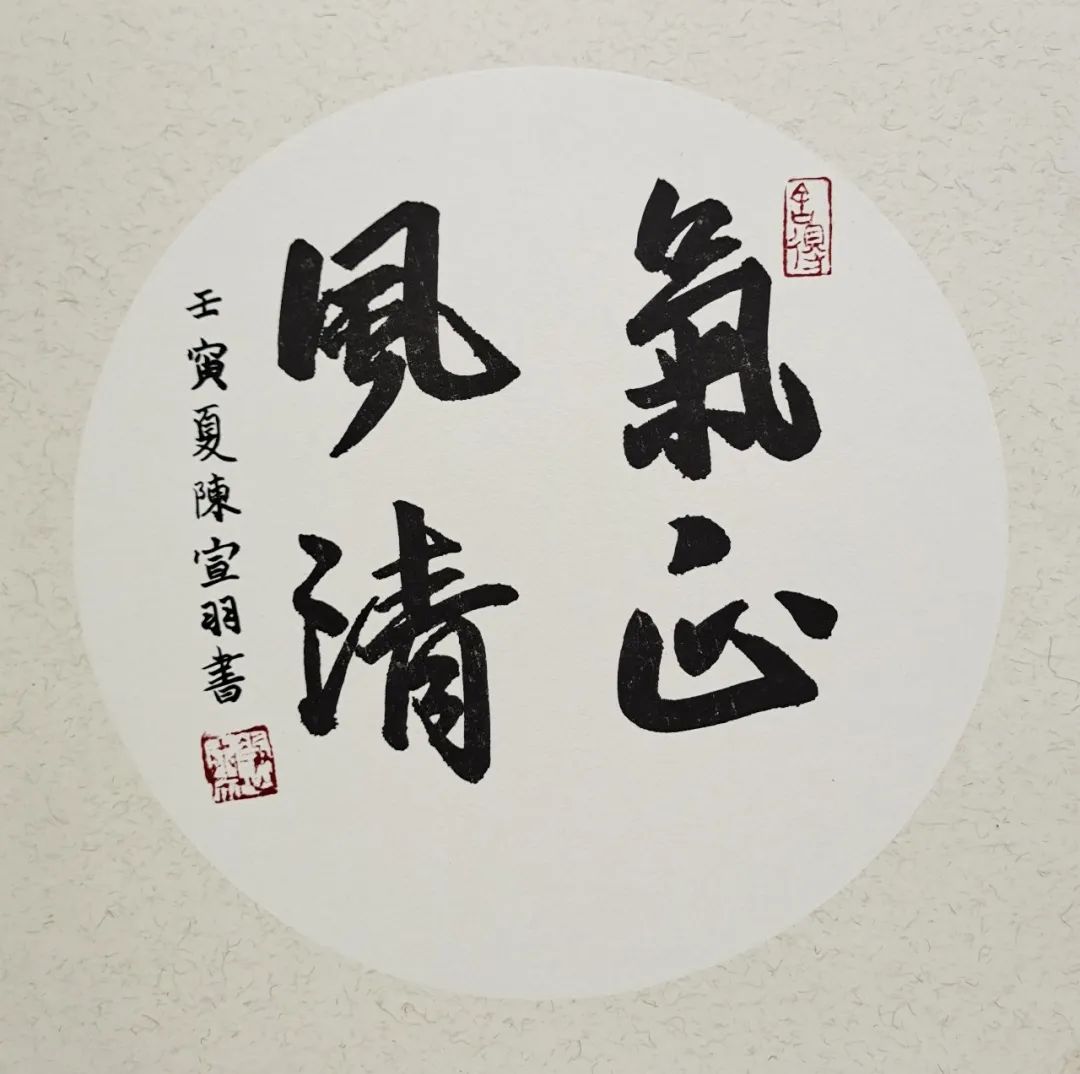 氣正
風清
壬寅夏陳宣羽書
舍得